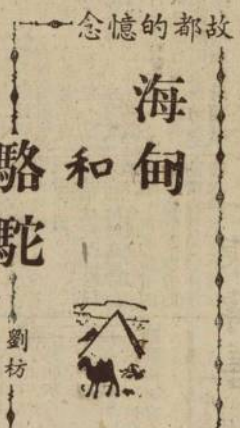 故都的憶念
海甸
和
駱駝
劉枋